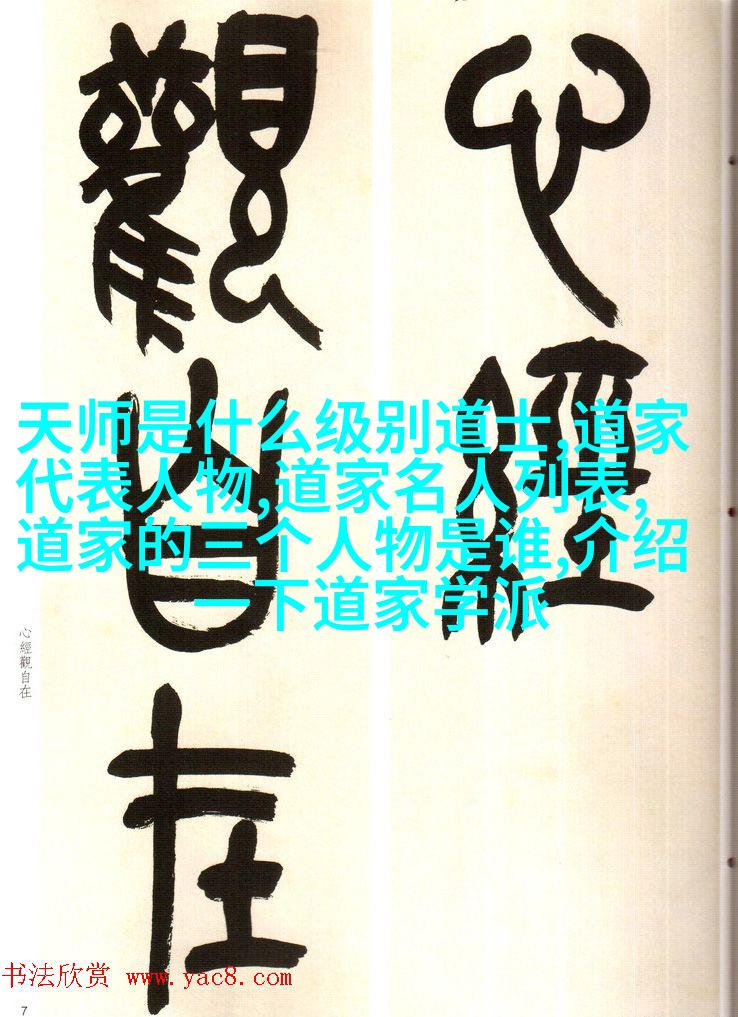 心經
觀自在
天师是什么级别道士,道家
代表人物,道家名人列表,
道家的三个人物是谁,介绍
一下道家学派
心經觀自在
书法欣赏 www.yac8.com
7